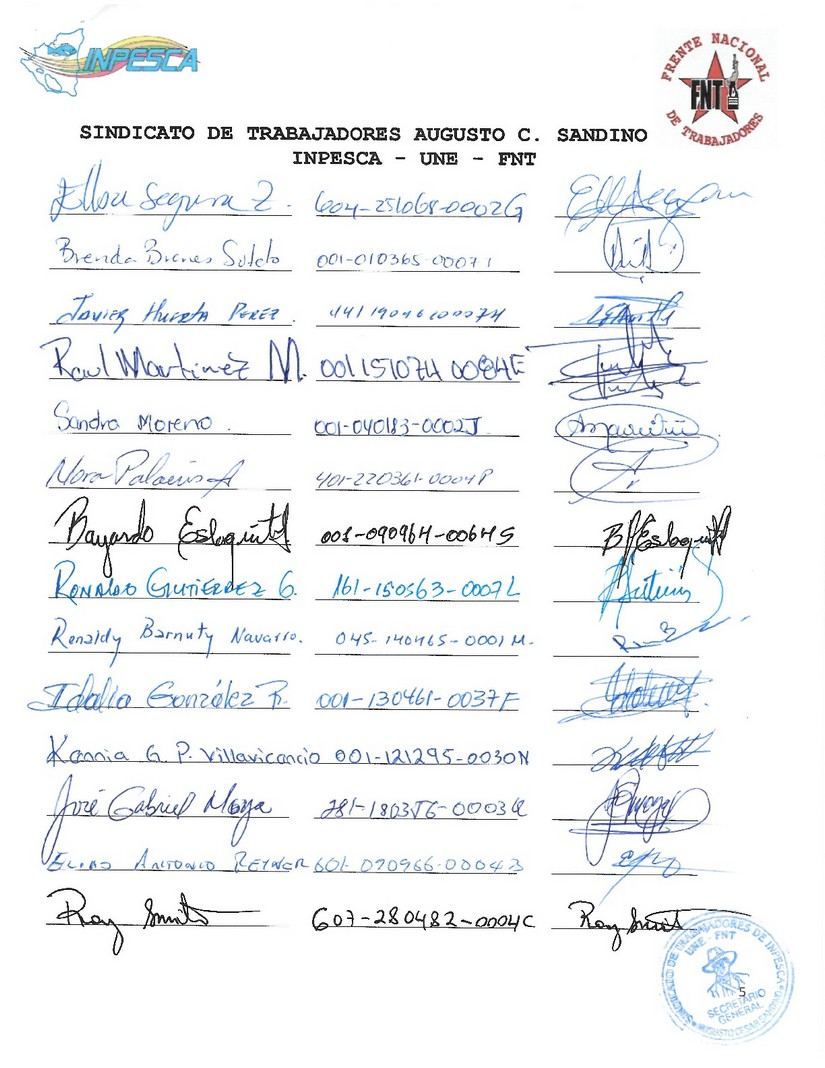 INPESCA
FRENTE NACIONAL
FNT
DE TRABAJADORES
SINDICATO DE TRABAJADORES AUGUSTO C. SANDINO
INPESCA - UNE - FNT
Segura Z. 604-251068-0002G
Brenda Brenes Sotelo 001-010365-0007
Javier Huerta Perez. 4411904610007H
Raul Martinez M. 001151074 0084E
Sandra Moreno. 001-040183-0002J
Nora Palacios A 401-220361-0004P
Bayardo 001-090964-0064S
RONALDO GUTIERREZ G. 161-150563-0007L
Renaldy Barnuty Navarro. 045-140465-0001M.
Idalia González R. 001-130461-0037F
Kannia G. P. Villavicencio 001-121295-0030N
José Gabriel Moya 281-180356-0003Q
ELIAS ANTONIO REYNER 601-070966-0004
Roy Smith 607-280482-0004C Roy Smith
SINDICATO DE TRABAJADORES DE INPESCA
UNE - FNT
5
SECRETARIO
GENERAL
AUGUSTO CESAR SANDINO